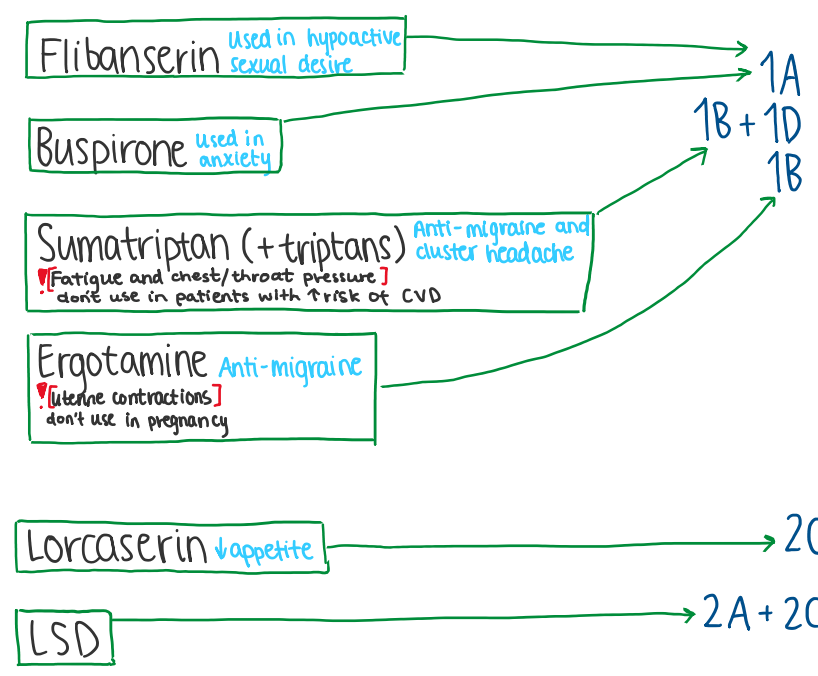 Flibanserin used in hypoactive
sexual desire
1A
Buspirone used in
anxiety
1B + 1D
1B
Sumatriptan (+ triptans) Anti-migraine and
cluster headache
![Fatigue and chest/throat pressure]
don't use in patients with ↑risk of CVD
Ergotamine Anti-migraine
![uterine contractions]
don't use in pregnancy
Lorcaserin ↓appetite
2C
LSD
2A + 2C